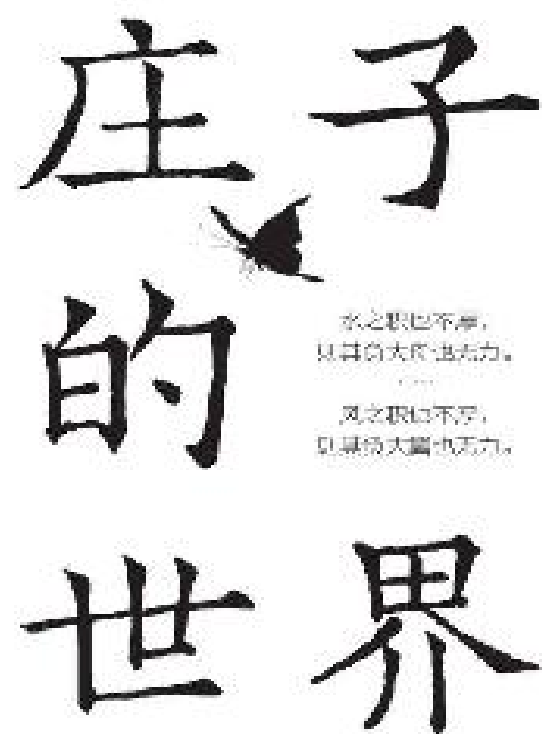 庄子
的
水之积也不厚，
则其负大舟也无力。
……
风之积也不厚，
则其负大翼也无力。
世界